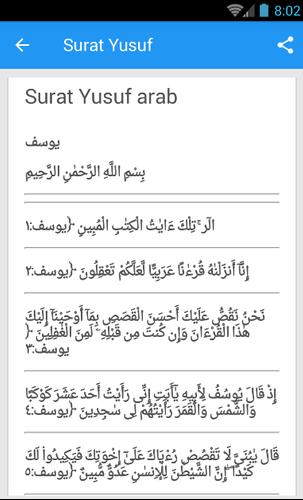 8:02
Surat Yusuf
Surat Yusuf arab
يوسف
بِسْمِ اللَّهِ الرَّحْمَٰنِ الرَّحِيمِ
الٓر ۚ تِلْكَ ءَايَٰتُ الْكِتَٰبِ الْمُبِينِ ﴿يوسف:١
إِنَّآ أَنزَلْنَٰهُ قُرْءَٰنًا عَرَبِيًّا لَّعَلَّكُمْ تَعْقِلُونَ ﴿يوسف:٢
نَحْنُ نَقُصُّ عَلَيْكَ أَحْسَنَ الْقَصَصِ بِمَآ أَوْحَيْنَآ إِلَيْكَ
هَٰذَا الْقُرْءَانَ وَإِن كُنتَ مِن قَبْلِهِۦ لَمِنَ الْغَٰفِلِينَ ﴿
يوسف:٣
إِذْ قَالَ يُوسُفُ لِأَبِيهِ يَٰٓأَبَتِ إِنِّى رَأَيْتُ أَحَدَ عَشَرَ كَوْكَبًا
وَالشَّمْسَ وَالْقَمَرَ رَأَيْتُهُمْ لِى سَٰجِدِينَ ﴿يوسف:٤
قَالَ يَٰبُنَىَّ لَا تَقْصُصْ رُءْيَاكَ عَلَىٰٓ إِخْوَتِكَ فَيَكِيدُوا۟ لَكَ
كَيْدًا ۖ إِنَّ الشَّيْطَٰنَ لِلْإِنسَٰنِ عَدُوٌّ مُّبِينٌ ﴿يوسف:٥